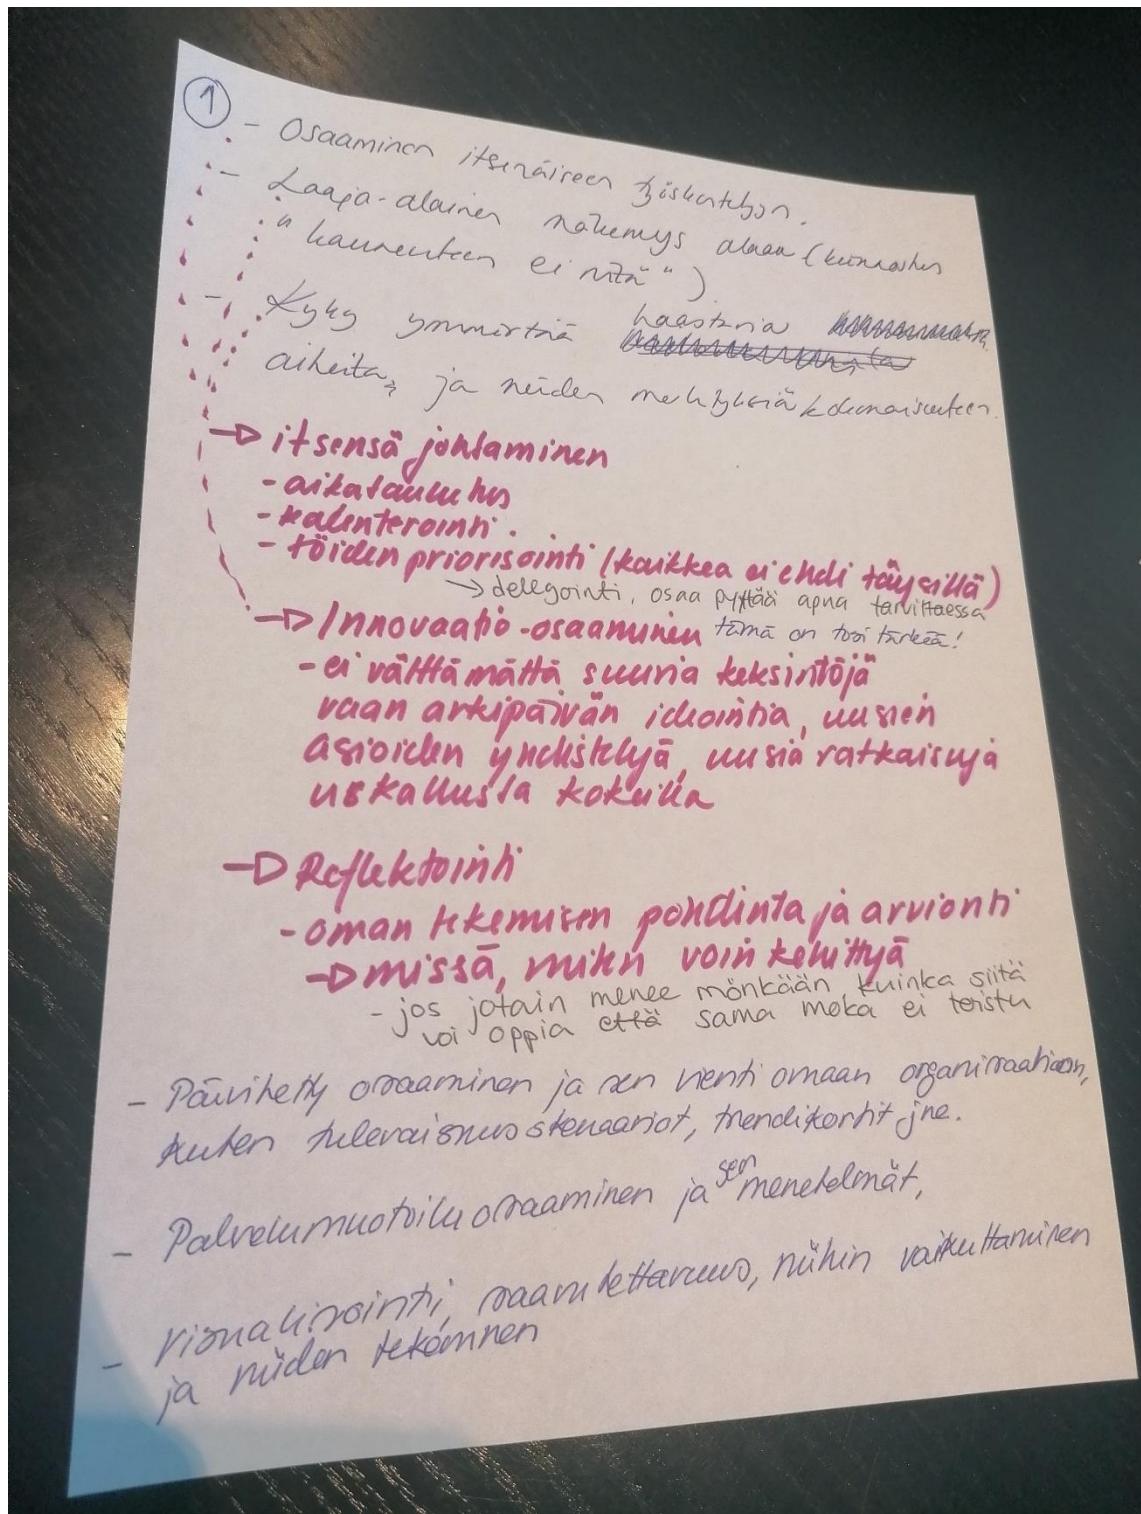 1
- Osaaminen itsenäiseen työskentelyyn.
- Laaja-alainen näkemys alaan (kiinnostus
"kauneuteen ei riitä")
- Kyky ymmärtää haastavia
aiheita, ja niiden merkityksiä kokonaisuuteen.
→ itsensä johtaminen
- aikataulutus
- kalenterointi.
- töiden priorisointi (kaikkea ei ehdi täysillä)
→ delegointi, osaa pyytää apua tarvittaessa
→ Innovaatio-osaaminen tämä on tosi tärkeä!
- ei välttämättä suuria keksintöjä
vaan arkipäivän ideointia, uusien
asioiden yhdistelyä, uusia ratkaisuja
uskallusta kokeilla
→ Reflektointi
- oman tekemisen pohdinta ja arviointi
→ missä, miten voin kehittyä
- jos jotain menee mönkään kuinka siitä
voi oppia että sama moka ei toistu
- Päivitetty osaaminen ja sen vienti omaan organisaatioon,
kuten tulevaisuusskenaariot, trendikortit jne.
- Palvelumuotoiluosaaminen ja sen menetelmät,
- Visualisointi, saavutettavuus, niihin vaikuttaminen
ja niiden tekeminen